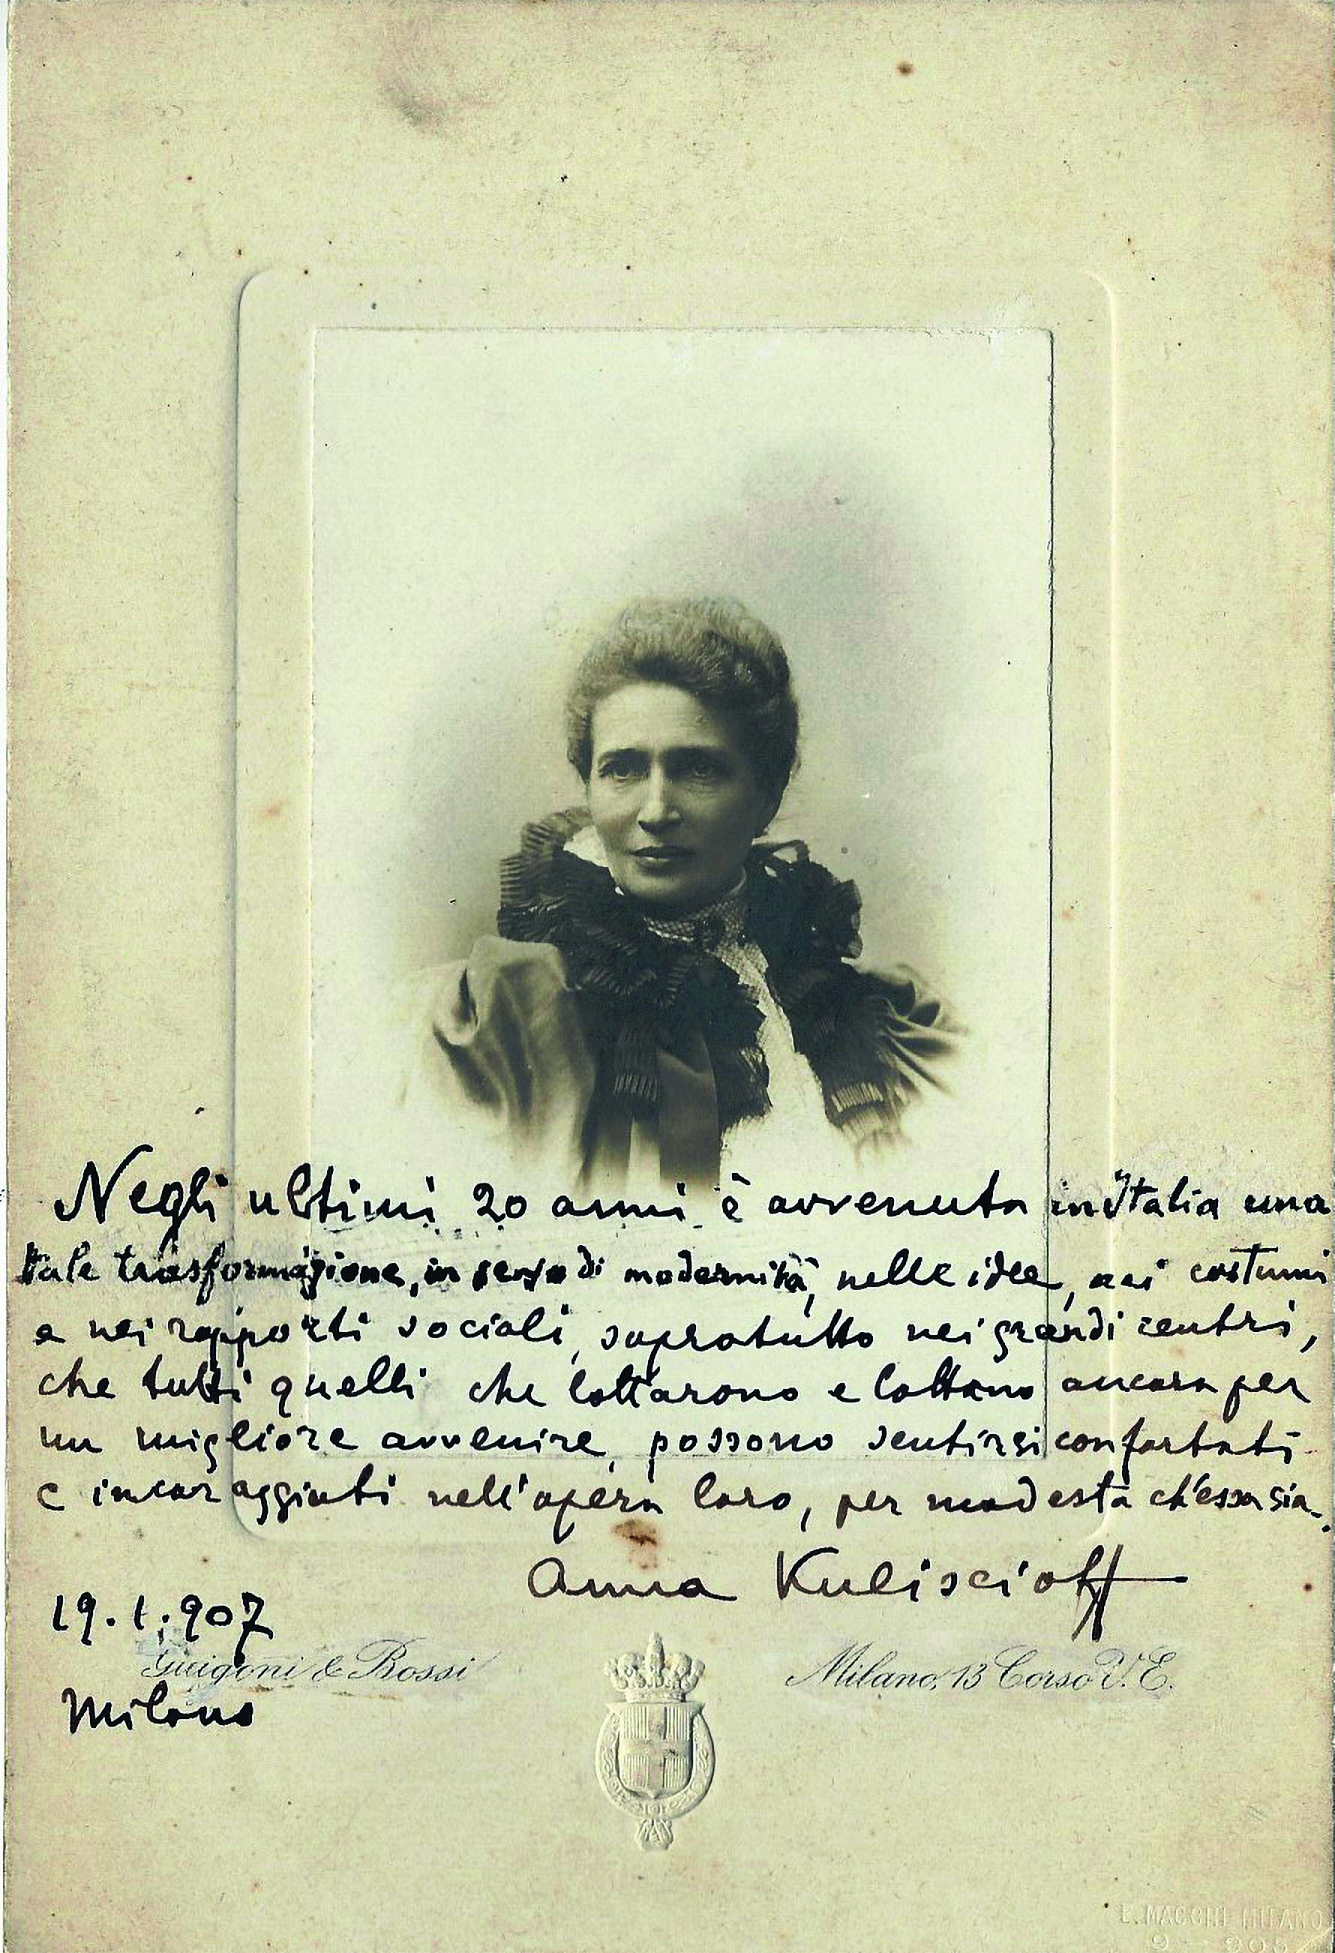 Negli ultimi 20 anni è avvenuta in Italia una
tale trasformazione, in senso di modernità, nelle idee, nei costumi
e nei rapporti sociali, sopratutto nei grandi centri,
che tutti quelli che lottarono e lottano ancora per
un migliore avvenire, possono sentirsi confortati
e incoraggiati nell'opera loro, per modesta ch'essa sia.
Anna Kuliscioff
19.1.907
Guigoni & Bossi
Milano, 13 Corso V. E.
Milano
L. MACCHI MILANO